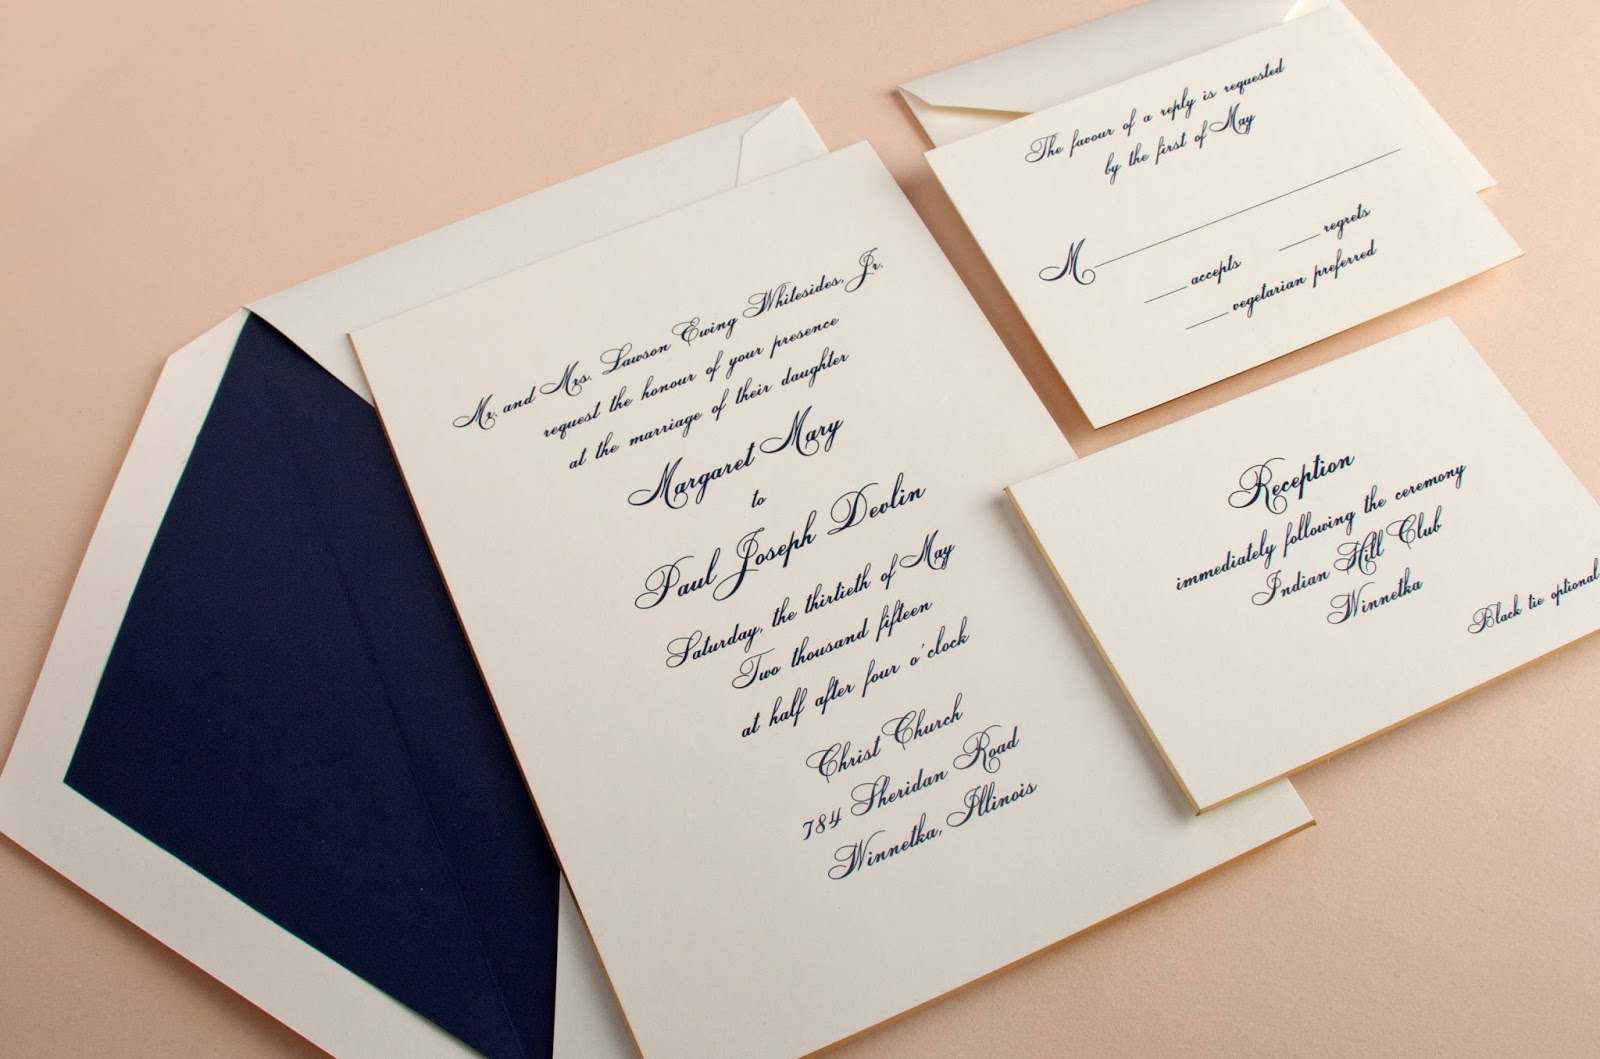 Mr. and Mrs. Lawson Ewing Whitesides, Jr.
request the honour of your presence
at the marriage of their daughter
Margaret Mary
to
Paul Joseph Devlin
Saturday, the thirtieth of May
Two thousand fifteen
at half after four o'clock
Christ Church
784 Sheridan Road
Winnetka, Illinois
The favour of a reply is requested
by the first of May
M
accepts regrets
vegetarian preferred
Reception
immediately following the ceremony
Indian Hill Club
Winnetka
Black tie optional